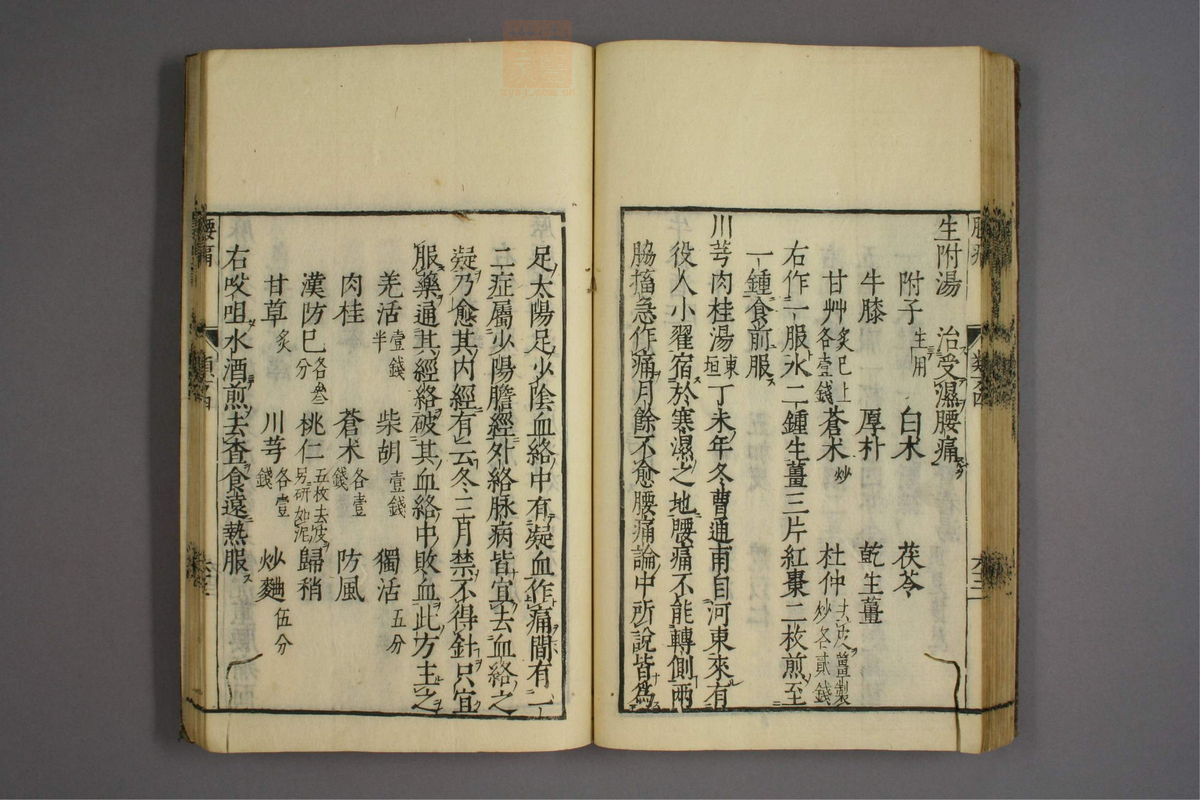 生附湯　治受濕腰痛
附子生用　白朮　茯苓
牛膝　厚朴　乾生薑
甘艸炙已上各壹錢　蒼朮炒　杜仲去皮薑製炒各貳錢
右作一服水二鍾生薑三片紅棗二枚煎至
一鍾食前服
川芎肉桂湯東垣丁未年冬曹通甫自河東來有
役人小翟宿於寒濕之地腰痛不能轉側兩
脇搐急作痛月餘不愈腰痛論中所說皆為
足太陽足少陰血絡中有凝血作痛間有一
二症屬少陽膽經外絡脉病皆宜去血絡之
凝乃愈其內經有云冬三月禁不得針只宜
服藥通其經絡破其血絡中敗血此方主之
羌活壹錢半　柴胡壹錢　獨活五分
肉桂　蒼朮各壹錢　防風
漢防巳各叁分　桃仁五枚去皮另研如泥　歸稍
甘草炙　川芎各壹錢　炒麯伍分
右㕮咀水酒煎去查食遠熱服
腰痛